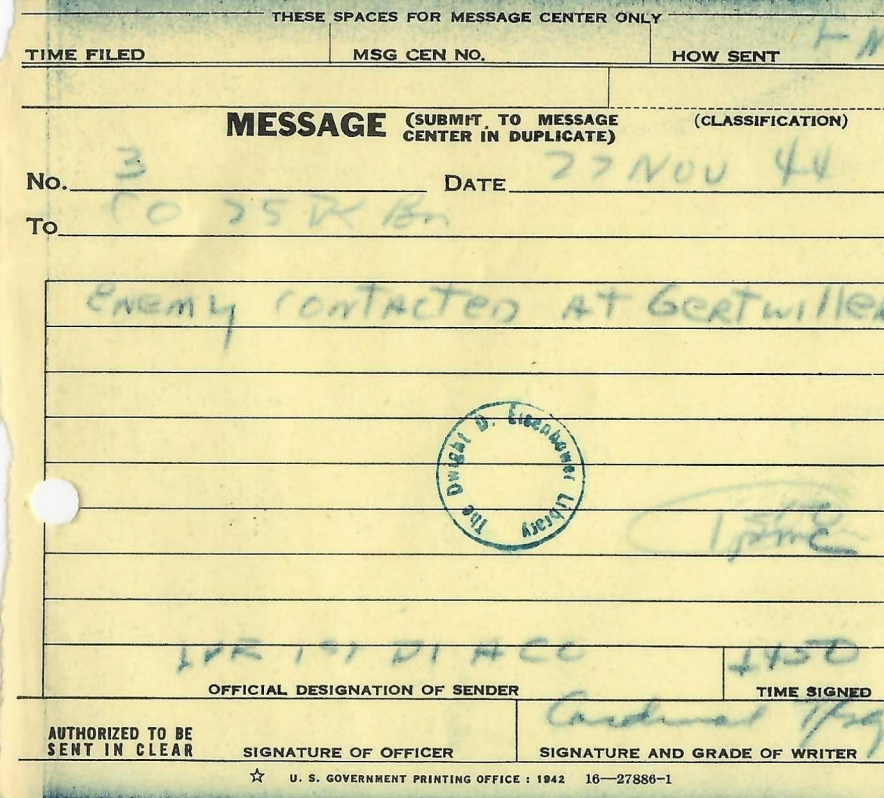 THESE SPACES FOR MESSAGE CENTER ONLY
TIME FILED MSG CEN NO. HOW SENT
MESSAGE (SUBMIT TO MESSAGE CENTER IN DUPLICATE) (CLASSIFICATION)
No. 3 DATE 27 NOV 44
To CO 25 Bn
ENEMY CONTACTED AT GERTWILLER
The Dwight D. Eisenhower Library
1450
OFFICIAL DESIGNATION OF SENDER TIME SIGNED
Cardinal T/Sg
AUTHORIZED TO BE
SENT IN CLEAR SIGNATURE OF OFFICER SIGNATURE AND GRADE OF WRITER
☆ U. S. GOVERNMENT PRINTING OFFICE : 1942 16—27886-1